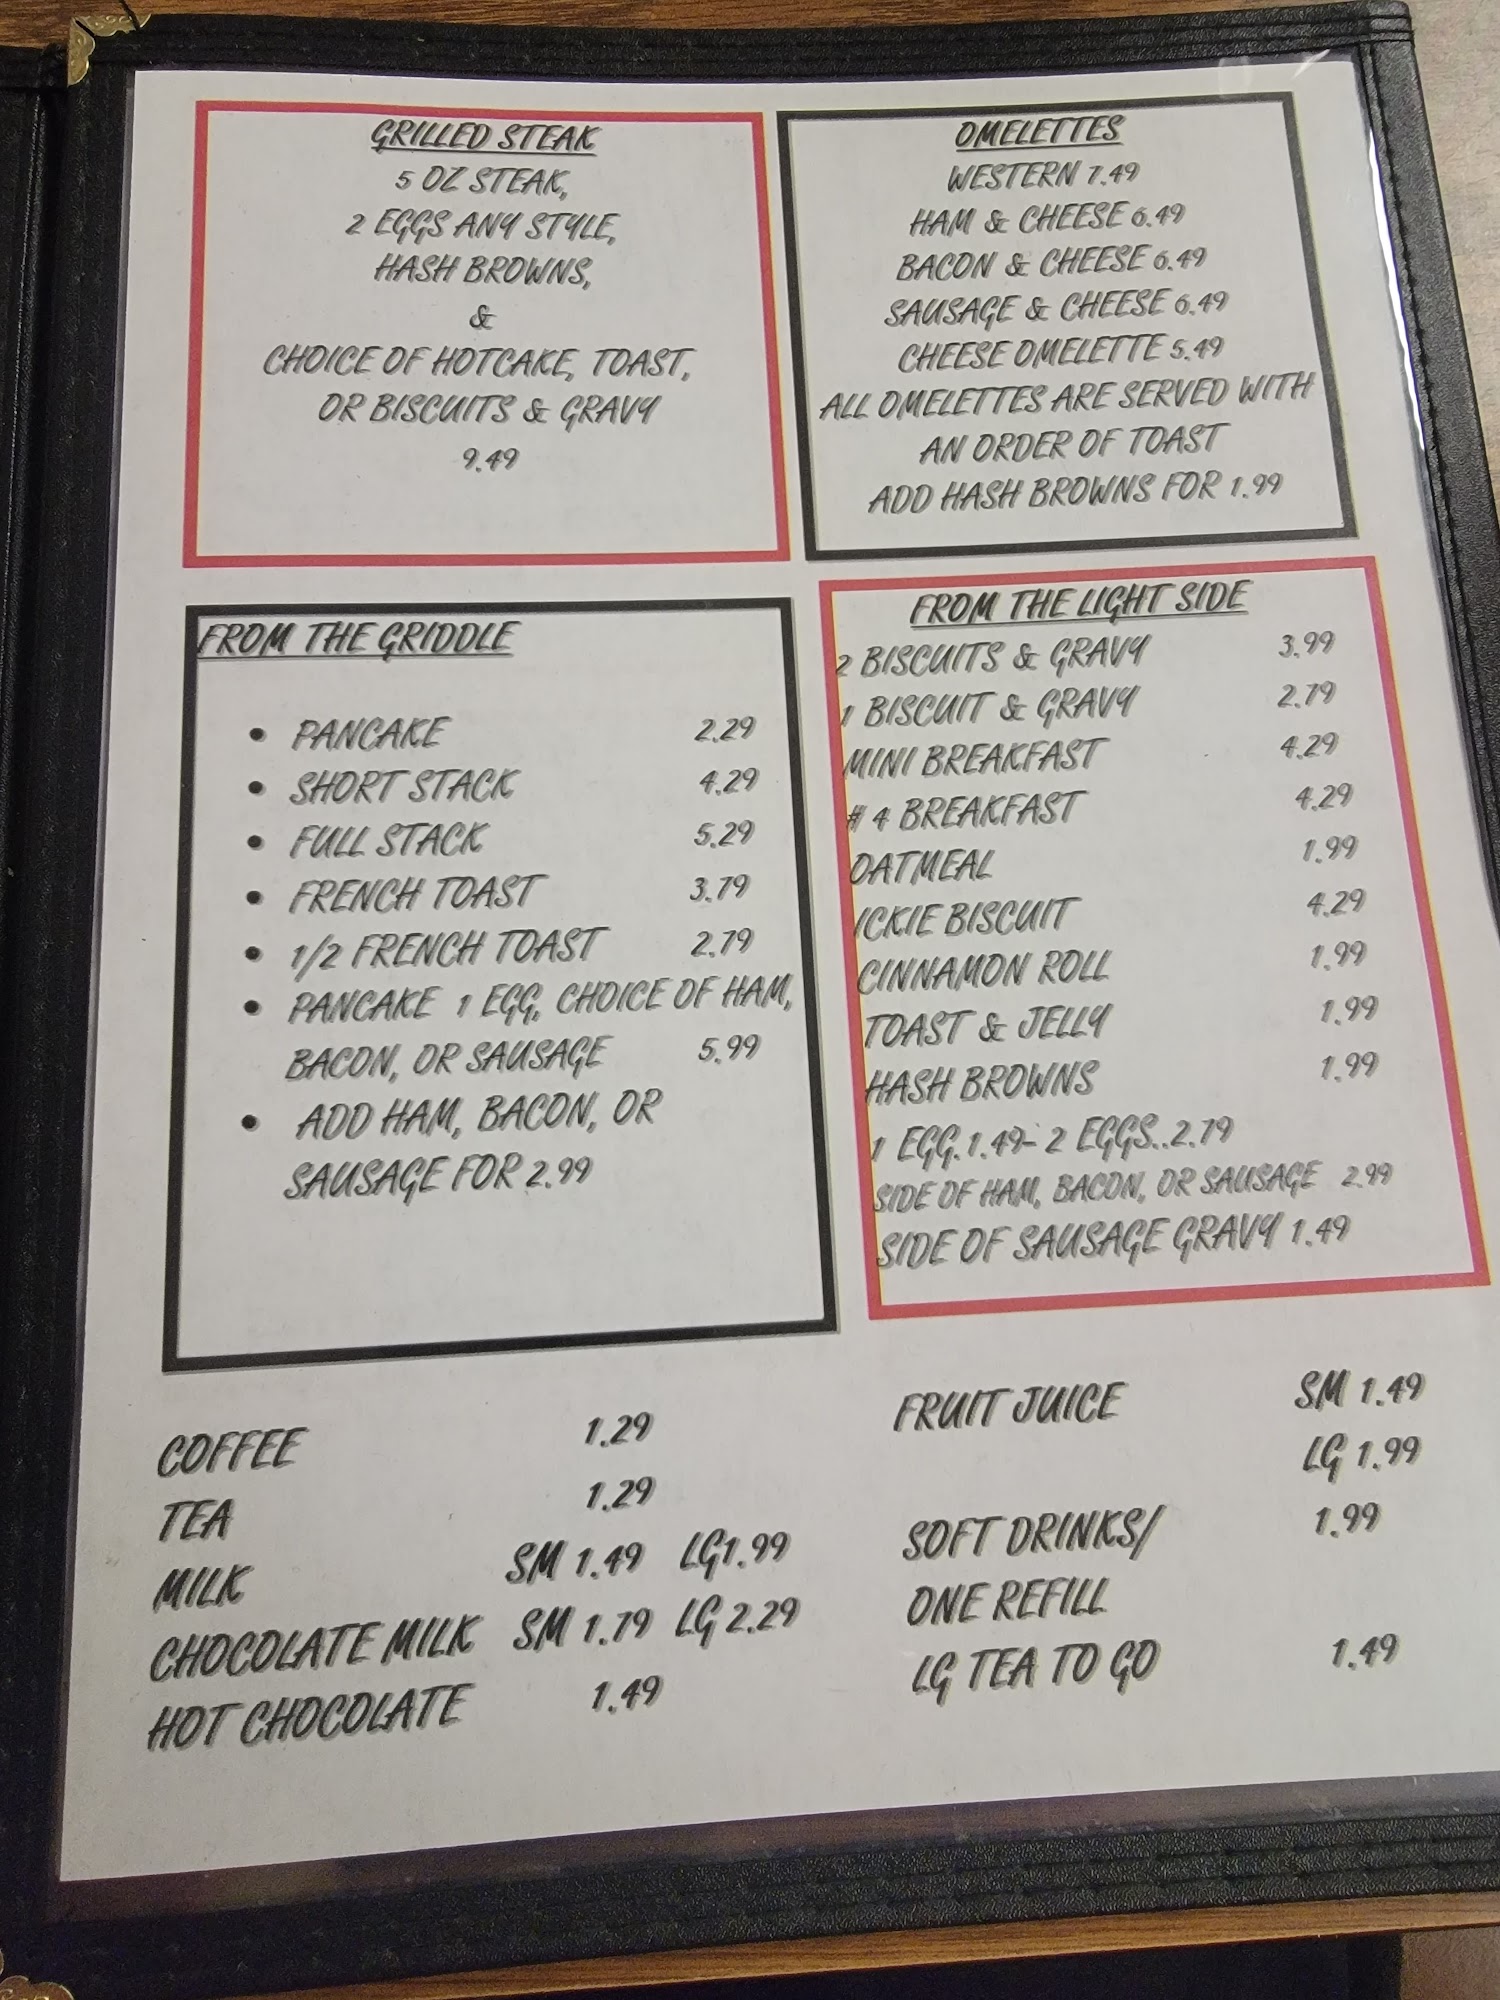 GRILLED STEAK
5 OZ STEAK,
2 EGGS ANY STYLE,
HASH BROWNS,
&
CHOICE OF HOTCAKE, TOAST,
OR BISCUITS & GRAVY
9.49
OMELETTES
WESTERN 7.49
HAM & CHEESE 6.49
BACON & CHEESE 6.49
SAUSAGE & CHEESE 6.49
CHEESE OMELETTE 5.49
ALL OMELETTES ARE SERVED WITH
AN ORDER OF TOAST
ADD HASH BROWNS FOR 1.99
FROM THE GRIDDLE
• PANCAKE 2.29
• SHORT STACK 4.29
• FULL STACK 5.29
• FRENCH TOAST 3.79
• 1/2 FRENCH TOAST 2.79
• PANCAKE 1 EGG, CHOICE OF HAM,
BACON, OR SAUSAGE 5.99
• ADD HAM, BACON, OR
SAUSAGE FOR 2.99
FROM THE LIGHT SIDE
2 BISCUITS & GRAVY 3.99
1 BISCUIT & GRAVY 2.79
MINI BREAKFAST 4.29
# 4 BREAKFAST 4.29
OATMEAL 1.99
ICKIE BISCUIT 4.29
CINNAMON ROLL 1.99
TOAST & JELLY 1.99
HASH BROWNS 1.99
1 EGG.1.49- 2 EGGS..2.79
SIDE OF HAM, BACON, OR SAUSAGE 2.99
SIDE OF SAUSAGE GRAVY 1.49
COFFEE 1.29
TEA 1.29
MILK SM 1.49 LG1.99
CHOCOLATE MILK SM 1.79 LG 2.29
HOT CHOCOLATE 1.49
FRUIT JUICE SM 1.49
LG 1.99
SOFT DRINKS/ 1.99
ONE REFILL
LG TEA TO GO 1.49